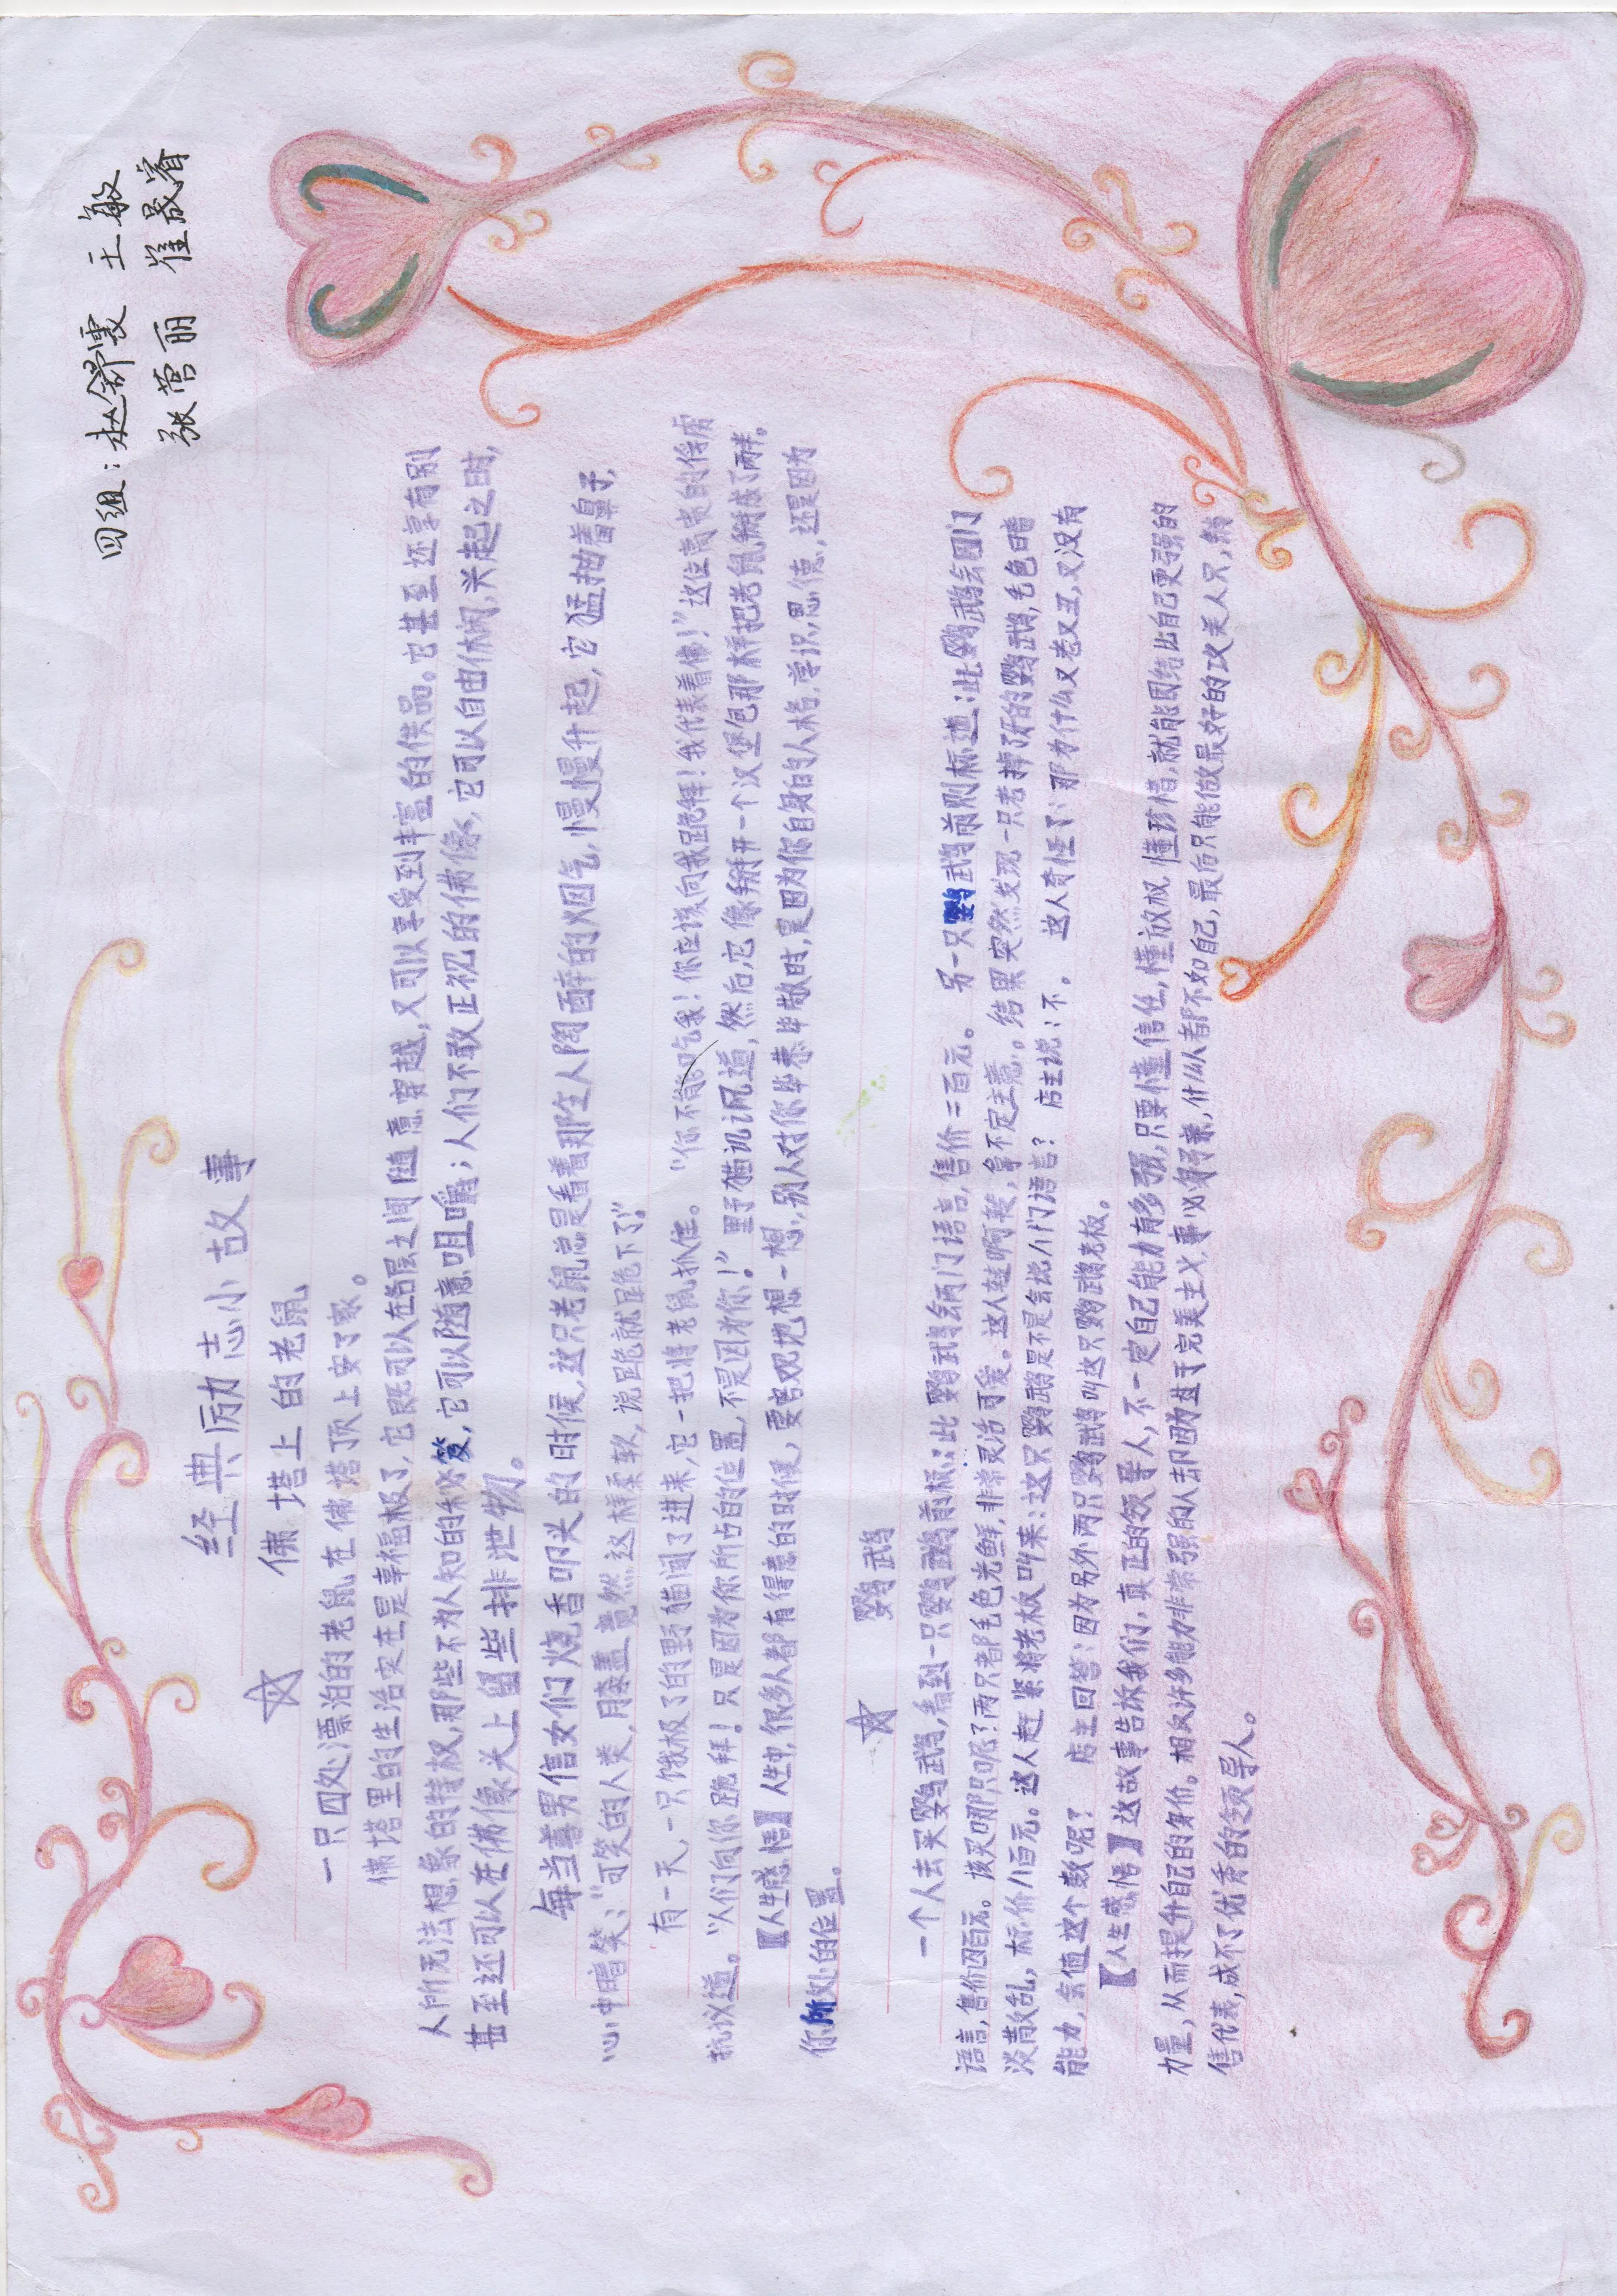 四组：赵舒雯 王敏
张营丽 崔晟睿
经典厉力志小故事
☆ 佛塔上的老鼠
一只四处漂泊的老鼠在佛塔顶上安了家。
佛塔里的生活实在是幸福极了，它既可以在各层之间随意穿越，又可以享受到丰富的供品。它甚至还享有别
人所无法想象的特权，那些不为人知的秘笈，它可以随意咀嚼；人们不敢正视的佛像，它可以自由休闲，兴起之时，
甚至还可以在佛像头上留些排泄物。
每当善男信女们烧香叩头的时候，这只老鼠总是看着那令人陶醉的烟气，慢慢升起，它猛抽着鼻子，
心中暗笑：“可笑的人类，膝盖竟然这样柔软，说跪就跪下了。”
有一天，一只饿极了的野猫闯了进来，它一把将老鼠抓住。 “你不能吃我！你应该向我跪拜！我代表着佛！”这位高贵的俘虏
抗议道。“人们向你跪拜！只是因为你所占的位置，不是因为你！”野猫讥讽道，然后，它像掰开一个汉堡包那样把老鼠掰成了两半。
【人生感悟】人生中，很多人都有得意的时候，要客观地想一想，别人对你毕恭毕敬时，是因为你自身的人格，学识，思，德，还是因为
你所处的位置。
☆ 鹦鹉
一个人去买鹦鹉，看到一只鹦鹉前标：此鹦鹉会两门语言，售价二百元。 另一只鹦鹉前则标道：此鹦鹉会四门
语言，售价四百元。该买哪只呢？两只都毛色光鲜，非常灵活可爱。这人转啊转，拿不定主意。结果突然发现一只老掉了牙的鹦鹉，毛色暗
淡散乱，标价八百元。这人赶紧将老板叫来：这只鹦鹉是不是会说八门语言？ 店主说：不。 这人奇怪了：那为什么又老又丑，又没有
能力，会值这个数呢？ 店主回答：因为另外两只鹦鹉叫这只鹦鹉老板。
【人生感悟】这故事告诉我们，真正的领导人，不一定自己能力有多强，只要懂信任，懂放权，懂珍惜，就能团结比自己更强的
力量，从而提升自己的身价。相反许多能力非常强的人却因为过于完美主义，事必躬亲，什么人都不如自己，最后只能做最好的攻关人只，销
售代表，成不了优秀的领导人。